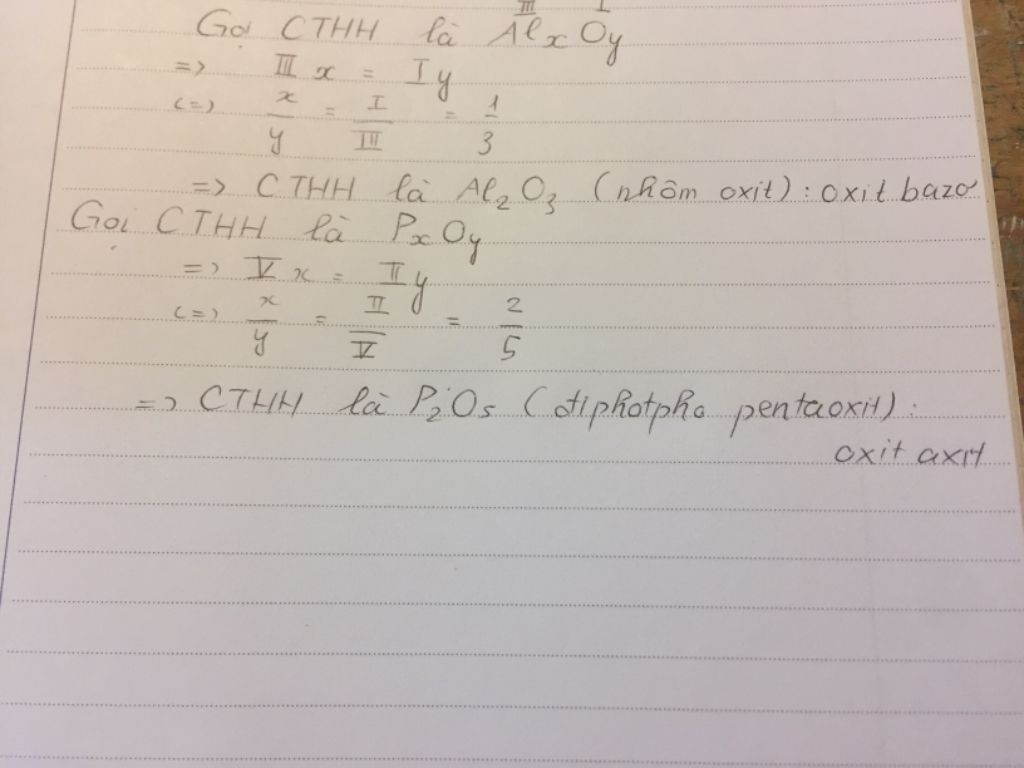 III I
Gọi CTHH là AlxOy
=> III x = I y
<=> x/y = I/III = 1/3
=> CTHH là Al2O3 (nhôm oxit) : oxit bazơ
Gọi CTHH là PxOy
=> V x = II y
<=> x/y = II/V = 2/5
=> CTHH là P2O5 (điphotpho pentaoxit) :
oxit axit